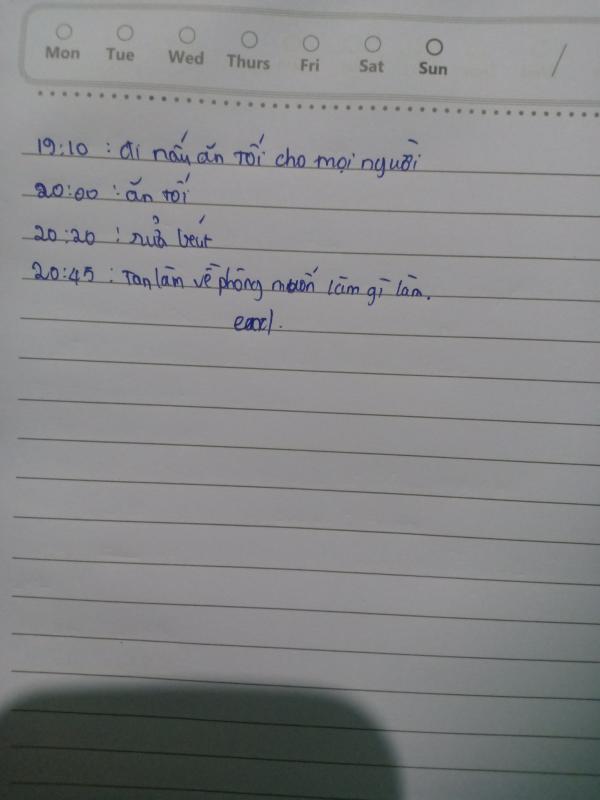 Mon Tue Wed Thurs Fri Sat Sun /
19:10 : đi nấu ăn tối cho mọi người
20:00 : ăn tối
20:20 : rửa
20:45 : Tan làm về phòng muốn làm gì làm.